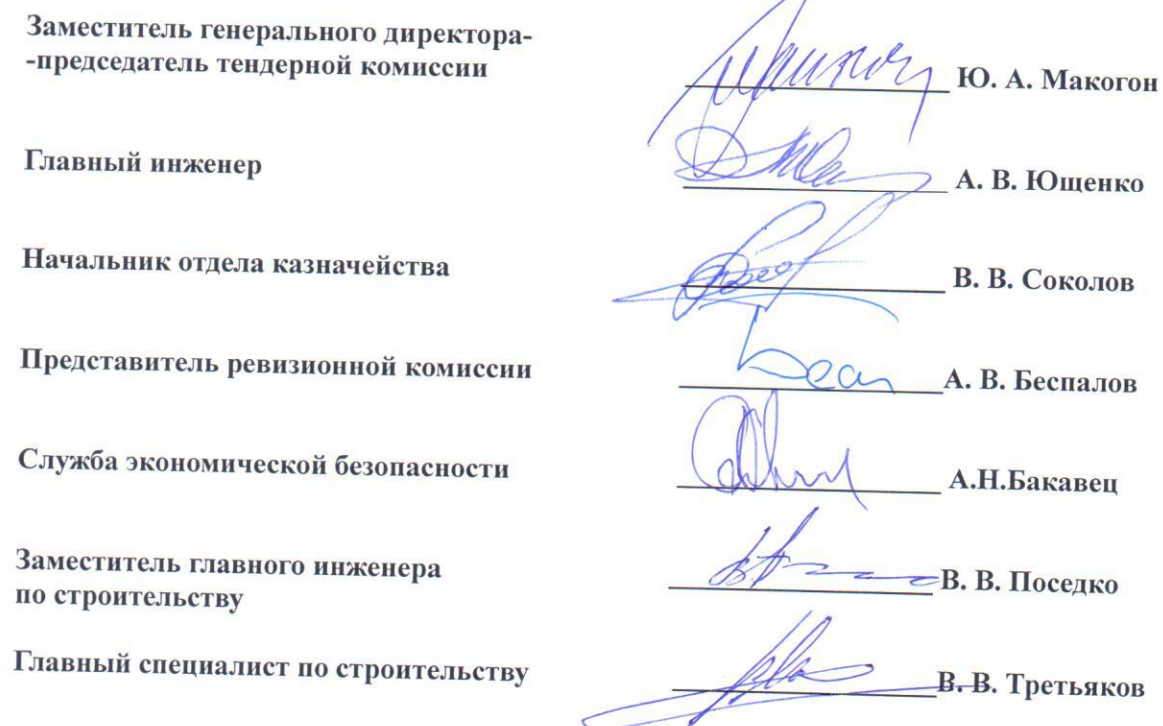 Заместитель генерального директора-
-председатель тендерной комиссии
Ю. А. Макогон
Главный инженер
А. В. Ющенко
Начальник отдела казначейства
В. В. Соколов
Представитель ревизионной комиссии
А. В. Беспалов
Служба экономической безопасности
А.Н.Бакавец
Заместитель главного инженера
по строительству
В. В. Поседко
Главный специалист по строительству
В. В. Третьяков